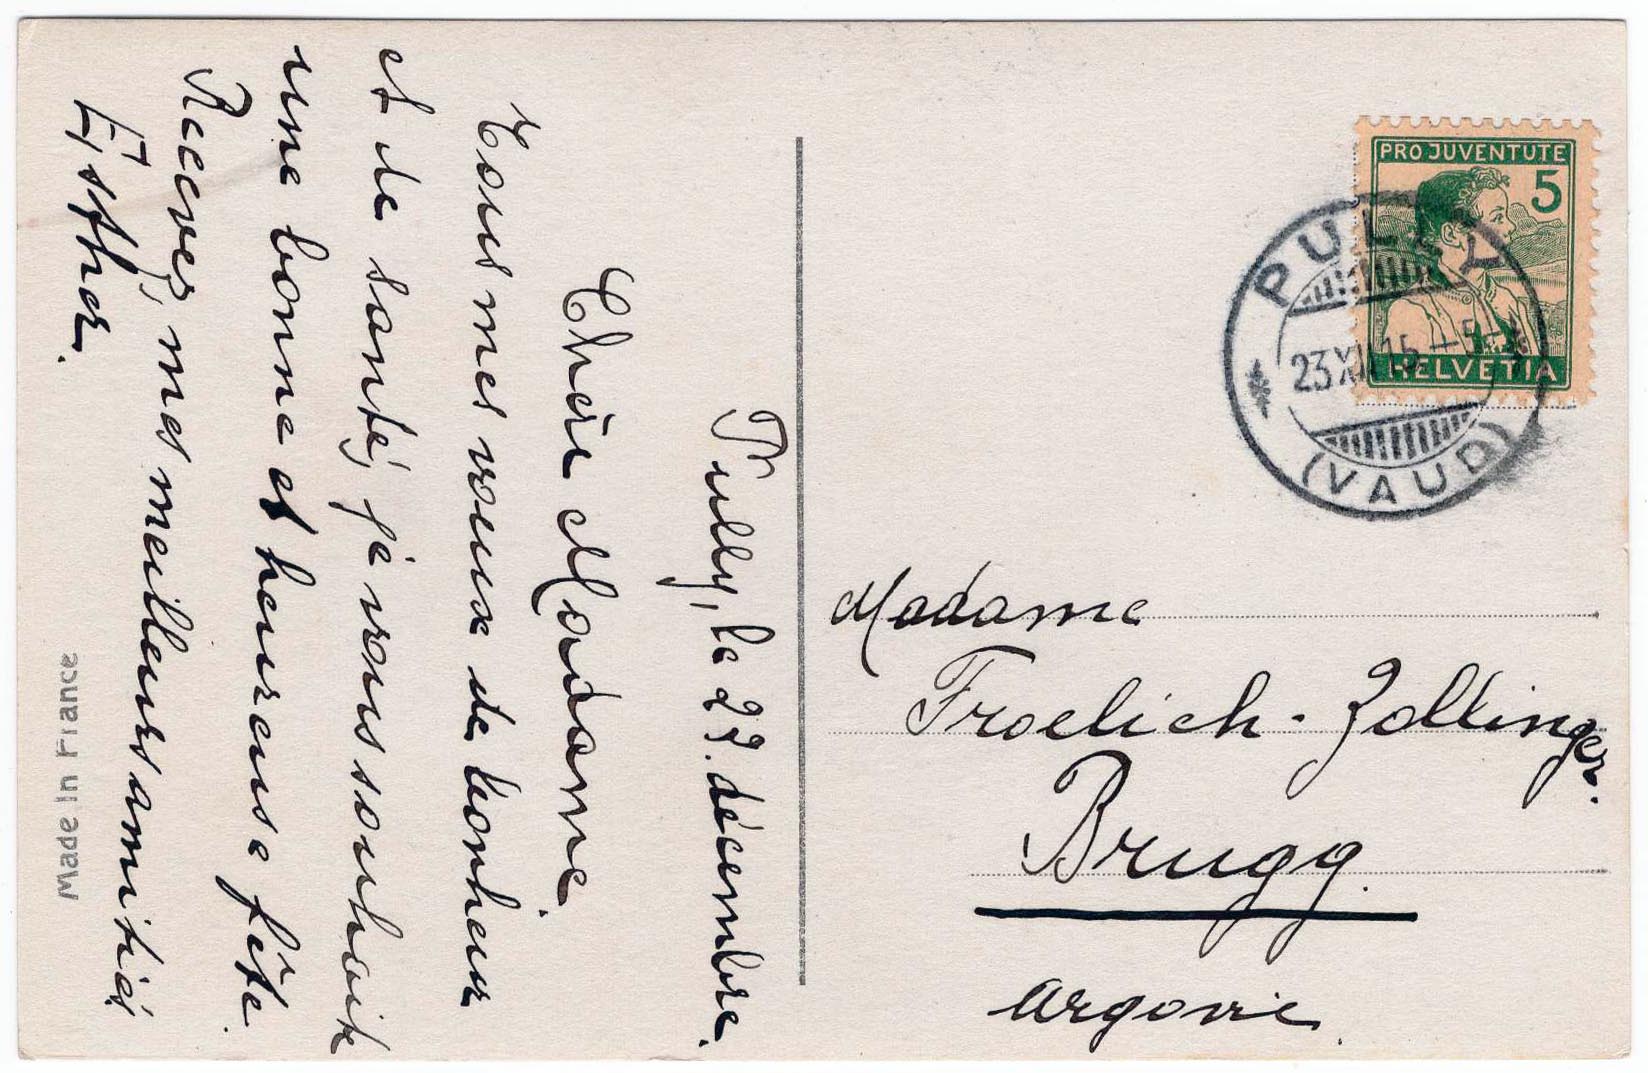 Pully, le 23. décembre.
Chère Madame.
Tous mes voeux de bonheur
et de santé, je vous souhaite
une bonne et heureuse fête.
Recevez, mes meilleurs amitiés
Esther.
Made in France
PRO JUVENTUTE
5
HELVETIA
PULLY
23 XII 15 – 5
(VAUD)
Madame
Froelich-Zollinger.
Brugg.
Argovie.